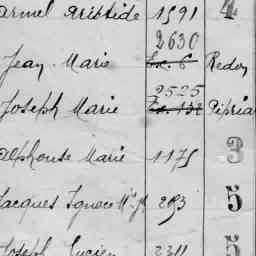 Armel Aristide 1591 4
2630
Jean Marie Ex. 6 Redon
2525
Joseph Marie Ex. 132 Pipria
Alphonse Marie 1175 3
Jacques Ignace Mie Jh 283 5
Joseph Lucien 2311 5